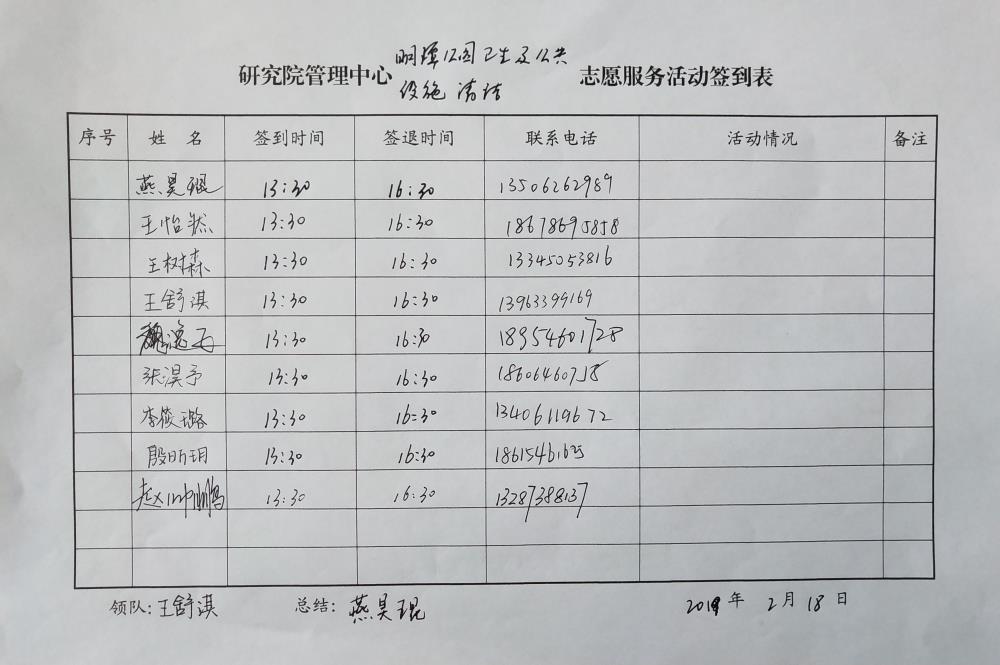 研究院管理中心 明潭公园卫生及公共
设施清洁 志愿服务活动签到表
序号 姓 名 签到时间 签退时间 联系电话 活动情况 备注
燕昊琨 13:30 16:30 13506262989
王怡然 13:30 16:30 18678695858
王树森 13:30 16:30 13345053816
王舒淇 13:30 16:30 13963399169
13:30 16:30 18954601728
张淏予 13:30 16:30
李筱璐 13:30 16:30 13406119672
殷昕玥 13:30 16:30
13:30 16:30 13287388137
领队:王舒淇 总结: 燕昊琨 2019 年 2 月 18 日